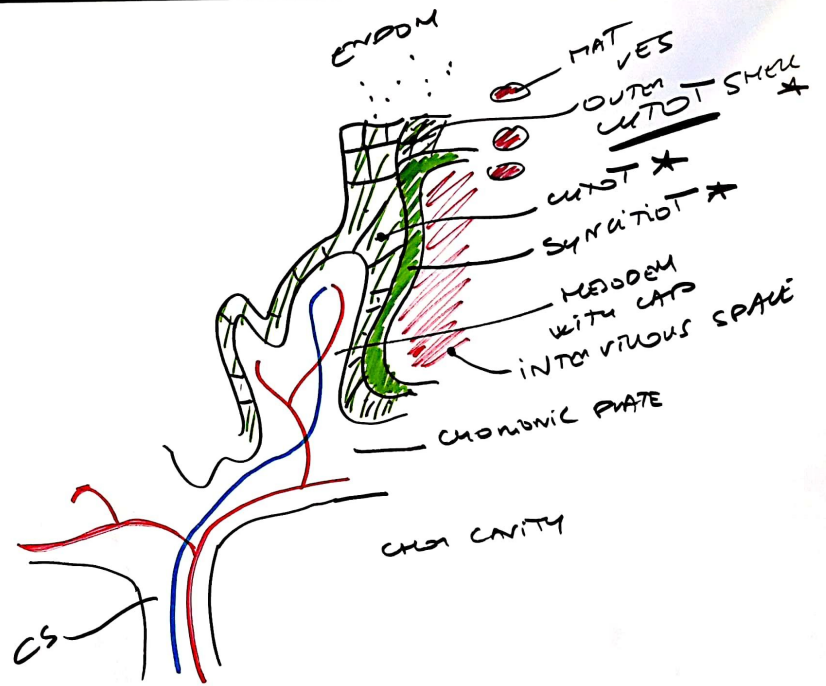 ENDOM
MAT
VES
OUTER
CYTOT SHELL *
CYTOT *
SYNCITIOT *
MESODEM
WITH CAPS
INTERVILLOUS SPACE
CHORIONIC PLATE
CHOR CAVITY
CS